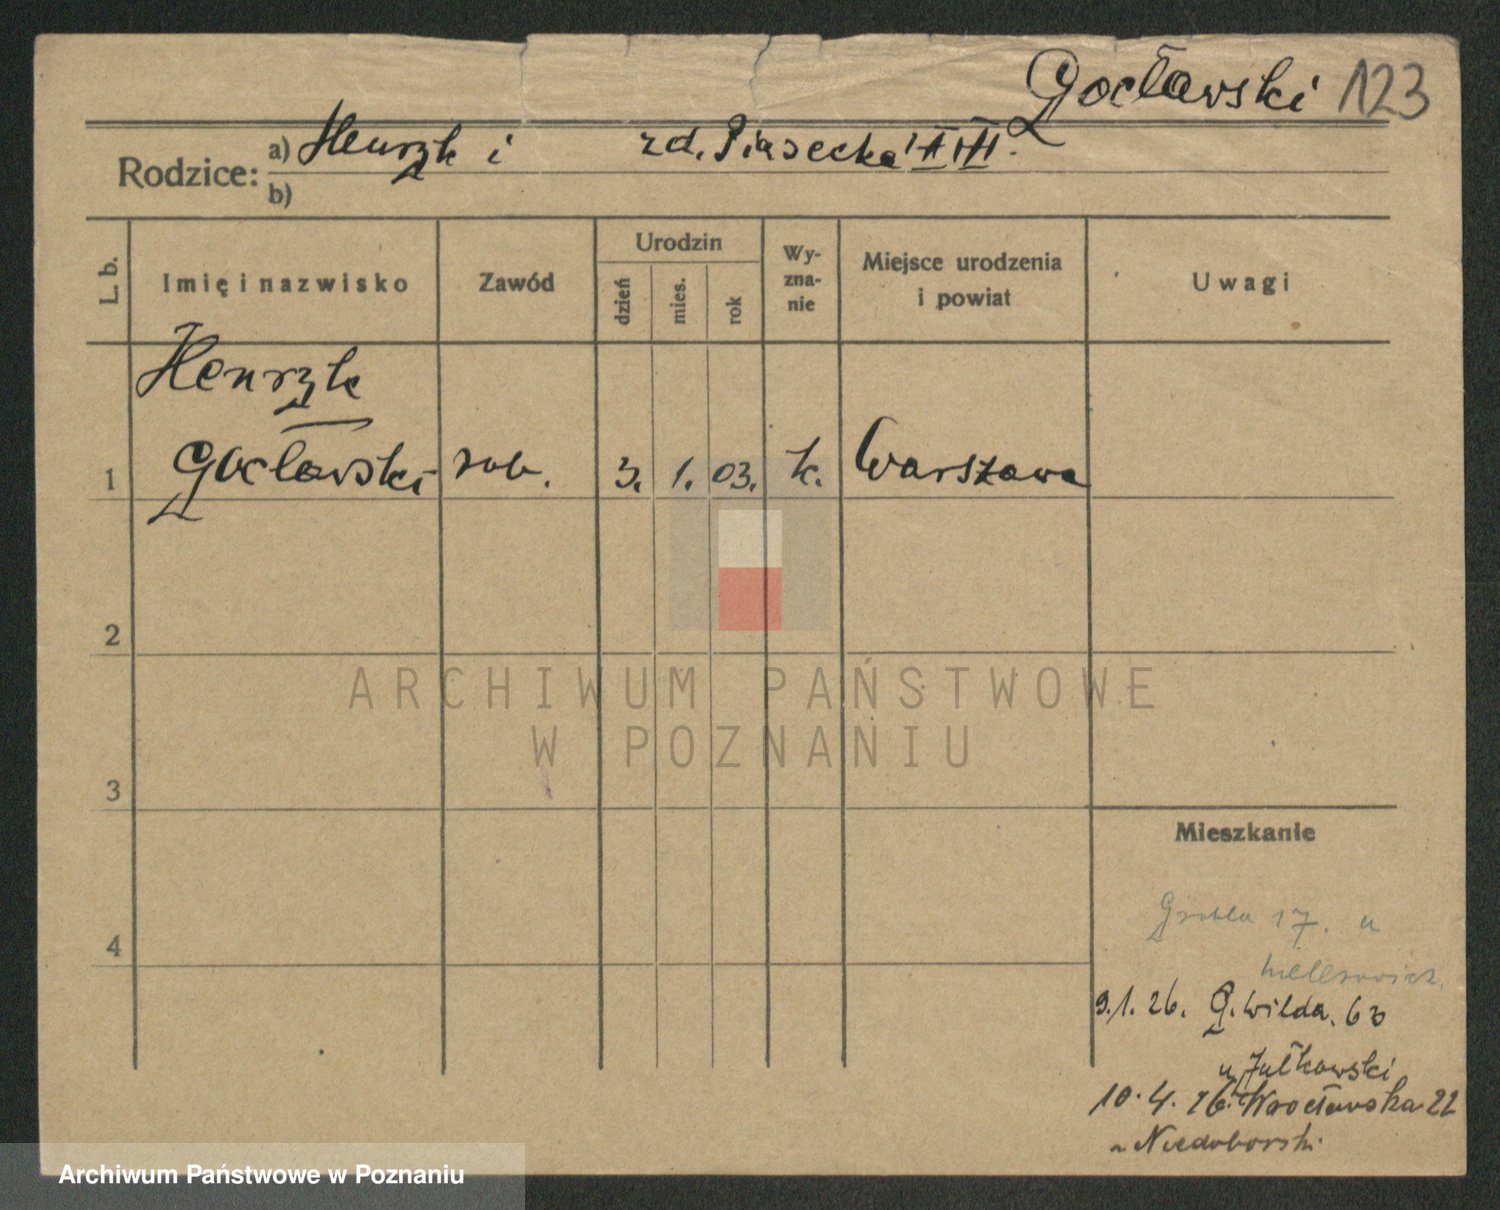 Gocławski 123
Rodzice: a) Henryk i zd. Piasecka
b)
L. b. Imię i nazwisko Zawód Urodzin dzień mies. rok Wy-zna-nie Miejsce urodzenia i powiat Uwagi
Henryk
1 Gocławski rob. 3. 1. 03. k. Warszawa
2
3
4
Mieszkanie
Grobla 17. u
9.1.26. G. Wilda. 63
u Jutkowski
10.4.26. Wrocławska 22
Niedoborski
ARCHIWUM PAŃSTWOWE
W POZNANIU
Archiwum Państwowe w Poznaniu